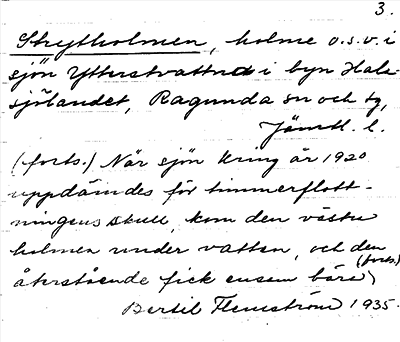 3.
Strytholmen, holme o.s.v. i
sjön Ytterstvattnet i byn Hale-
sjölandet, Ragunda sn och tg,
Jämtl. l.
(forts.) När sjön kring år 1920
uppdämdes för timmerflott-
ningens skull, kom den västra
holmen under vatten, och den
återstående fick ensam bära
(forts.)
Bertil Flemström 1935.